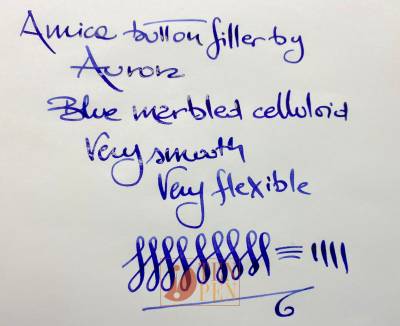 Amica button filler by
Aurora
Blue marbled celluloid
Very smooth
Very flexible
PEN
6